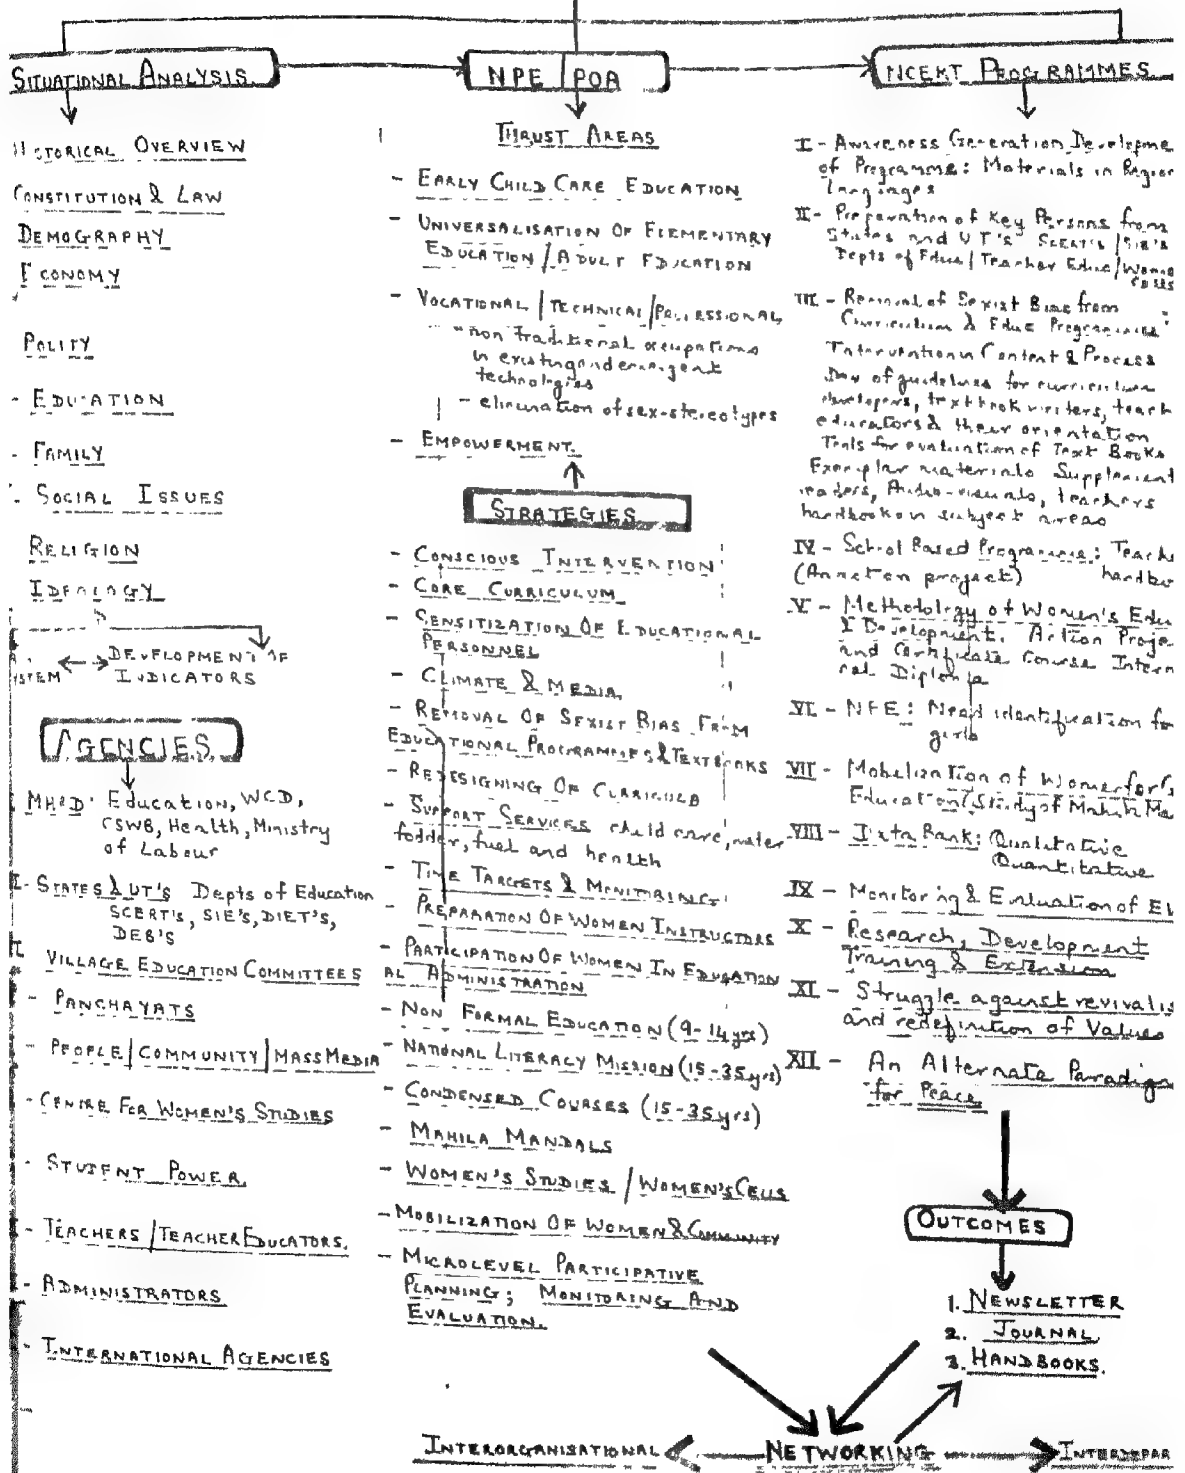 SITUATIONAL ANALYSIS
HISTORICAL OVERVIEW
CONSTITUTION & LAW
DEMOGRAPHY
ECONOMY
POLITY
- EDUCATION
- FAMILY
- SOCIAL ISSUES
RELIGION
IDEOLOGY
DEVELOPMENT OF
INDICATORS
AGENCIES
MHRD: Education, WCD,
CSWB, Health, Ministry
of Labour
STATES & UT'S Depts of Education
SCERT'S, SIE'S, DIET'S,
DEB'S
VILLAGE EDUCATION COMMITTEES
- PANCHAYATS
- PEOPLE/COMMUNITY/MASS MEDIA
- CENTRE FOR WOMEN'S STUDIES
- STUDENT POWER.
- TEACHERS/TEACHER EDUCATORS.
- ADMINISTRATORS
- INTERNATIONAL AGENCIES
NPE/POA
THRUST AREAS
- EARLY CHILD CARE EDUCATION
- UNIVERSALISATION OF ELEMENTARY
EDUCATION/ADULT EDUCATION
- VOCATIONAL/TECHNICAL/PROFESSIONAL
- non traditional occupations
in existing and emergent
technologies
- elimination of sex-stereotypes
- EMPOWERMENT.
STRATEGIES
- CONSCIOUS INTERVENTION
- CORE CURRICULUM
- SENSITIZATION OF EDUCATIONAL
PERSONNEL
- CLIMATE & MEDIA
- REMOVAL OF SEXIST BIAS FROM
EDUCATIONAL PROGRAMMES & TEXTBOOKS
- REDESIGNING OF CURRICULA
- SUPPORT SERVICES child care, water
fodder, fuel and health
- TIME TARGETS & MONITORING
- PREPARATION OF WOMEN INSTRUCTORS
- PARTICIPATION OF WOMEN IN EDUCATION
AL ADMINISTRATION
- NON FORMAL EDUCATION (9-14yrs)
- NATIONAL LITERACY MISSION (15-35yrs)
- CONDENSED COURSES (15-35yrs)
- MAHILA MANDALS
- WOMEN'S STUDIES/WOMEN'S CELLS
- MOBILIZATION OF WOMEN & COMMUNITY
- MICROLEVEL PARTICIPATIVE
PLANNING; MONITORING AND
EVALUATION.
NCERT PROGRAMMES
I - Awareness Generation Developme
of Programme: Materials in Region
languages
II - Preparation of Key Persons from
States and UT'S SCERT'S/SIE'S
Depts of Educ/Teacher Educ/Wome
Cells
III - Removal of Sexist Bias from
Curriculum & Educ Programmes:
Intervention in Content & Process
Dev of guidelines for curriculum
developers, textbook writers, teach
educators & their orientation
Tools for evaluation of Text Books
Exemplar materials Supplement
readers, Audio-visuals, teachers
handbook in subject areas
IV - School Based Programme: Teach
handbo
(Anneton project)
V - Methodology of Women's Edu
& Development. Action Proje
and Certificate Course Intern
nal Diploma
VI - NFE: Need identification for
girls
VII - Mobelization of Women for
Education (Study of Mahila Ma
VIII - Data Bank: Qualitative
Quantitative
IX - Monitoring & Evaluation of
X - Research, Development
Training & Extension
XI - Struggle against revivalis
and redefinition of Values
XII - An Alternate Paradigm
for Peace
OUTCOMES
1. NEWSLETTER
2. JOURNAL
3. HANDBOOKS.
INTERORGANISATIONAL NETWORKING INTERDEPAR